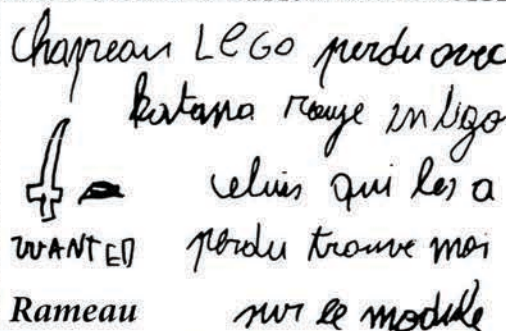 Chapeau LEGO perdu avec
katana rouge en lego
celuis qui les a
WANTED perdu trouve moi
Rameau sur le module